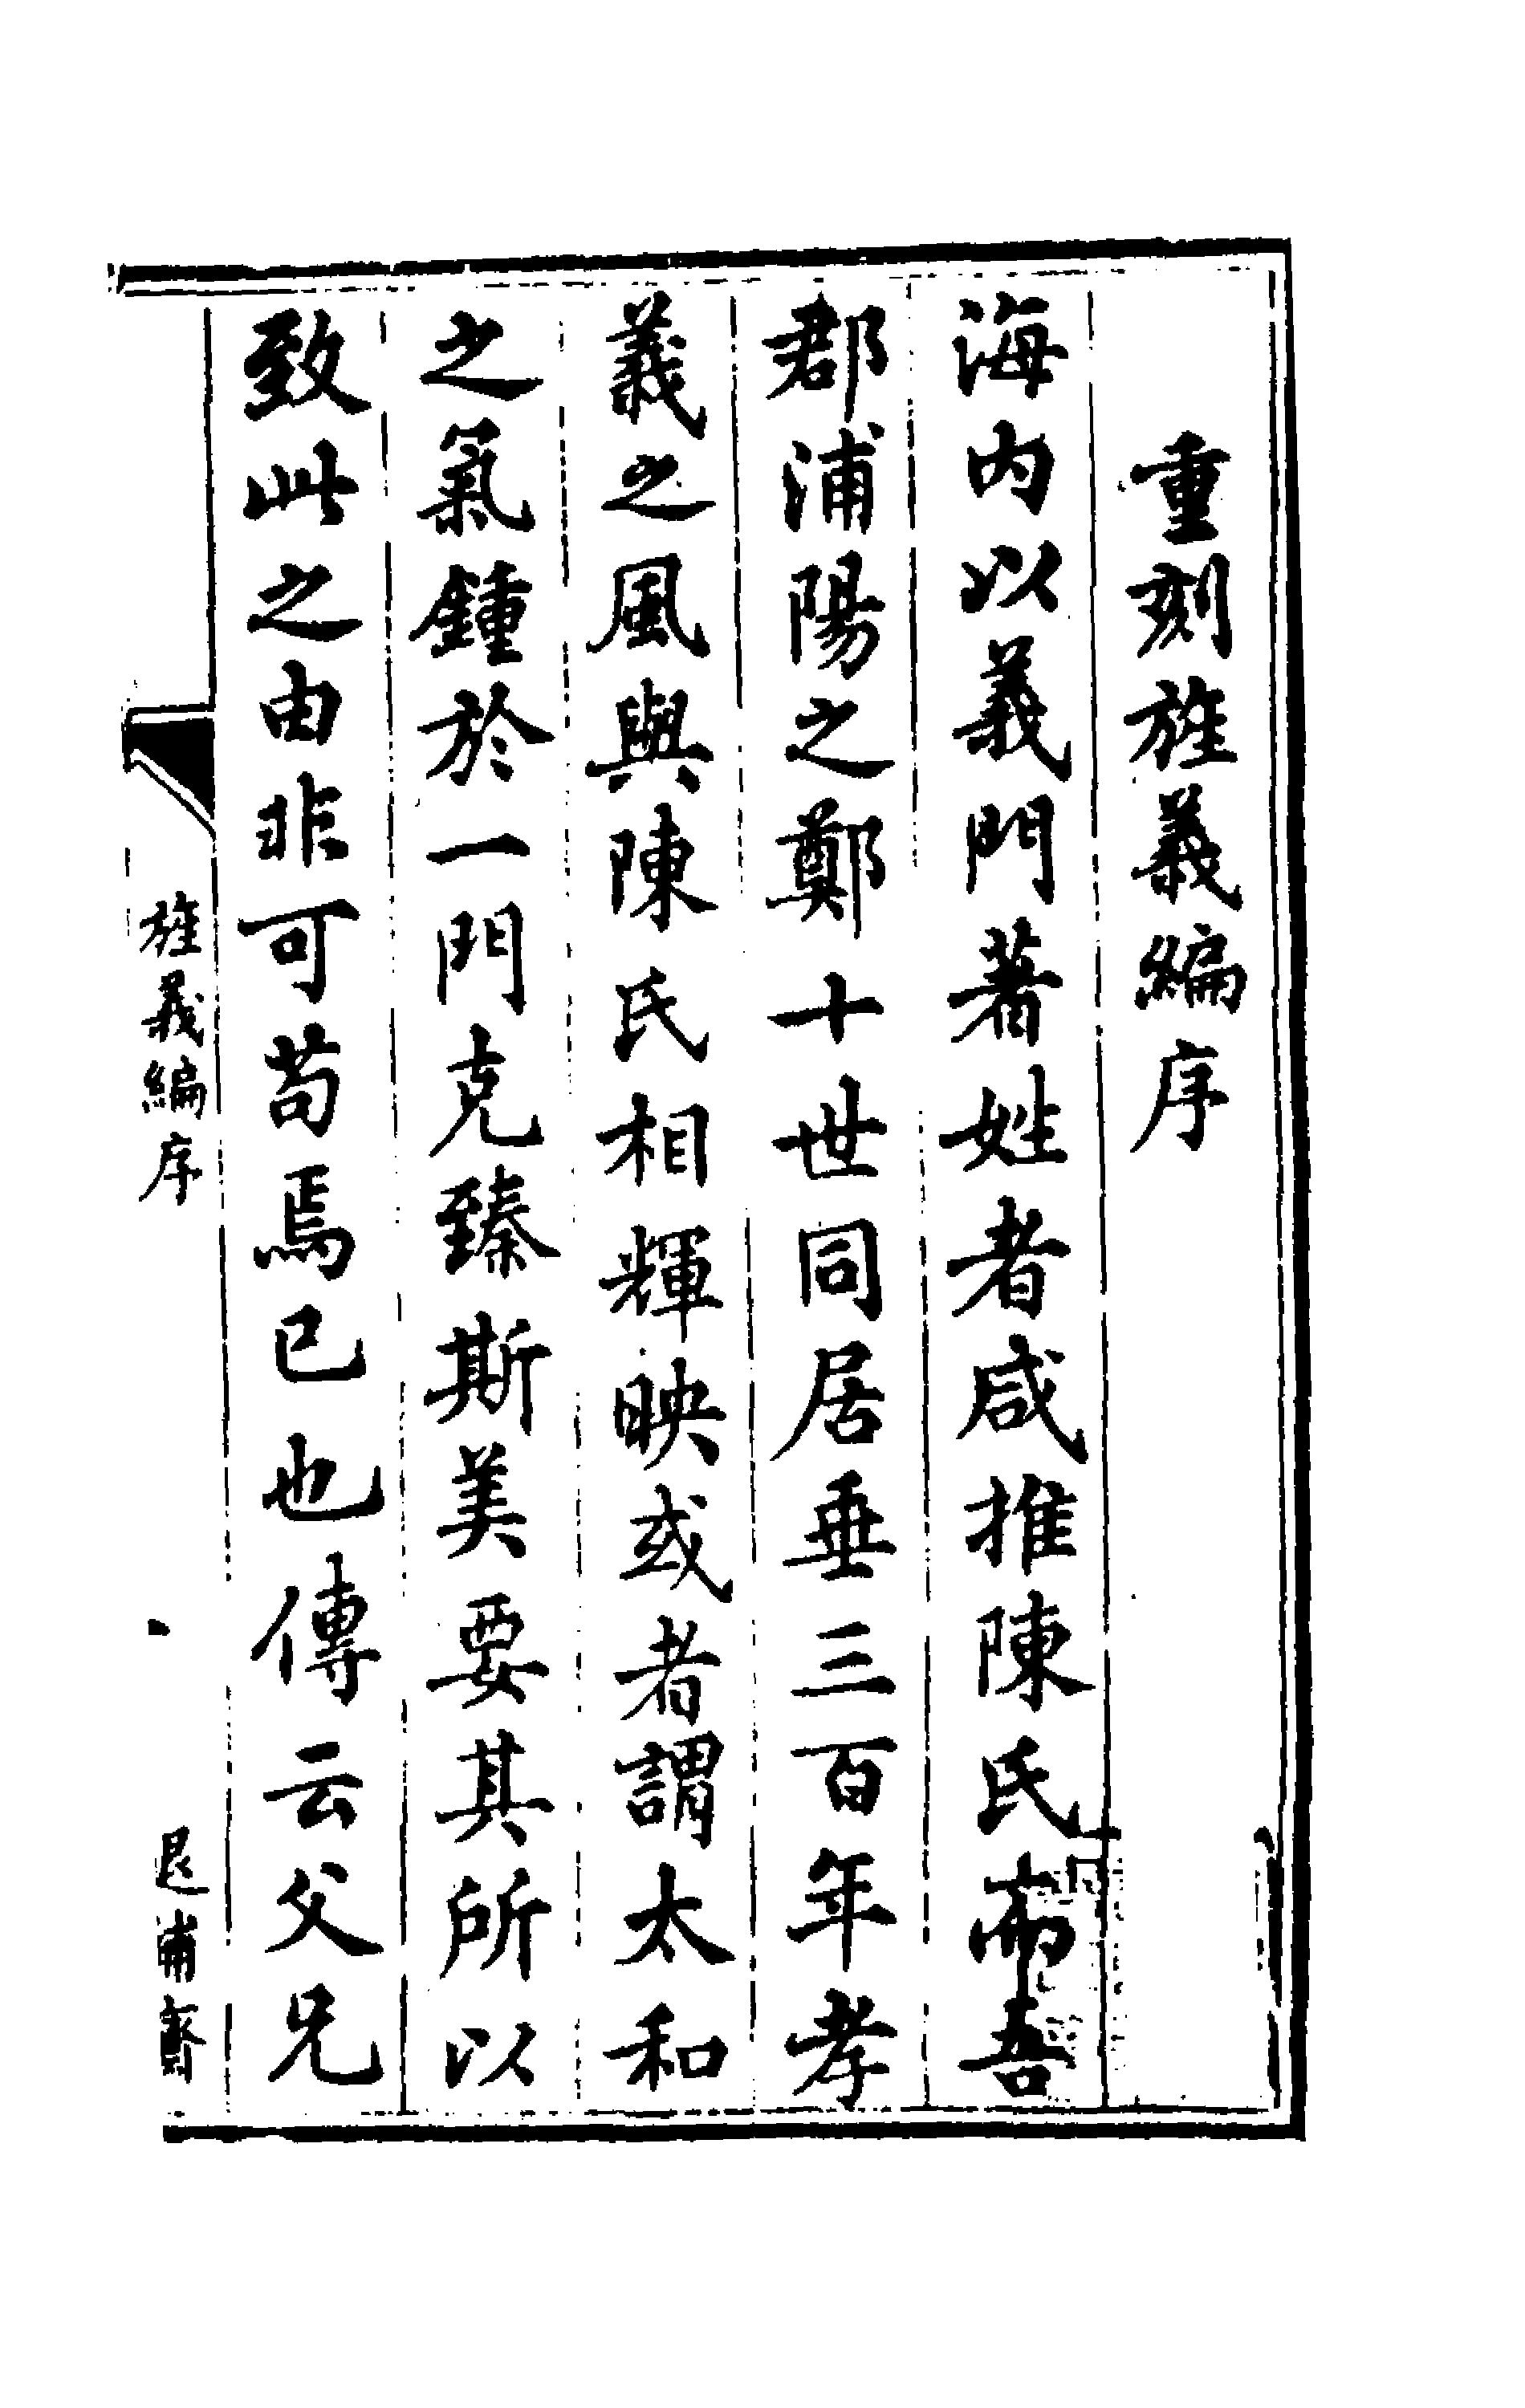 重刻旌義編序
海內以義門著姓者咸推陳氏而吾
郡浦陽之鄭十世同居垂三百年孝
義之風與陳氏相輝映或者謂太和
之氣鍾於一門克臻斯美要其所以
致此之由非可苟焉已也傳云父兄
旌義編序
退補齋